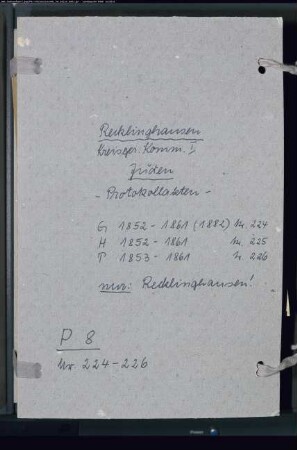 Recklinghausen
Kreisger. Komm. I
Juden
- Protokollakten -
G 1852 - 1861 (1882) Nr. 224
H 1852 - 1861 Nr. 225
T 1853 - 1861 Nr. 226
nur: Recklinghausen!
P 8
Nr. 224-226